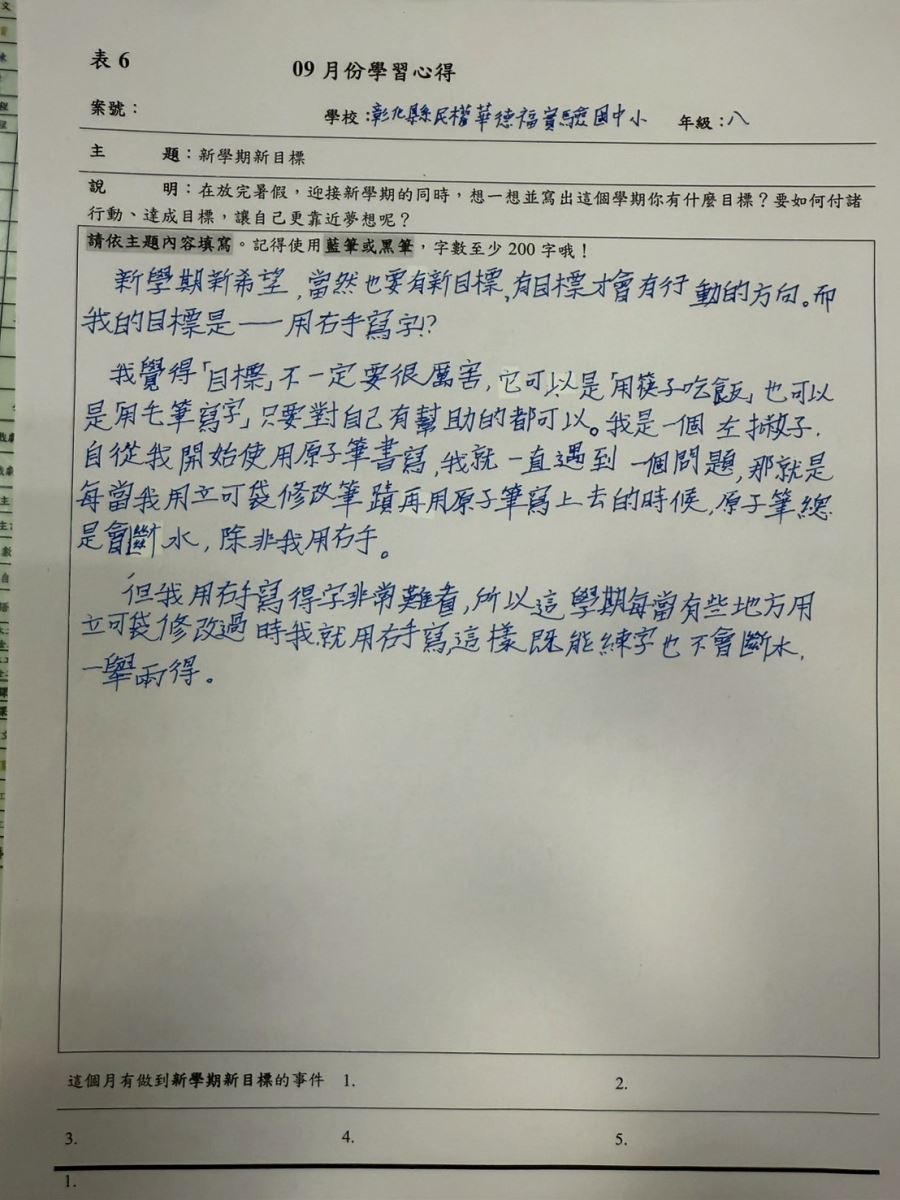 表 6
09 月份學習心得
案號： 學校：彰化縣民權華德福實驗國中小 年級：八
主 題：新學期新目標
說 明：在放完暑假，迎接新學期的同時，想一想並寫出這個學期你有什麼目標？要如何付諸
行動、達成目標，讓自己更靠近夢想呢？
請依主題內容填寫。記得使用藍筆或黑筆，字數至少 200 字哦！
新學期新希望，當然也要有新目標，有目標才會有行動的方向。而
我的目標是——用右手寫字!?
我覺得「目標」不一定要很厲害，它可以是「用筷子吃飯」也可以
是「用毛筆寫字」只要對自己有幫助的都可以。我是一個左撇子，
自從我開始使用原子筆書寫，我就一直遇到一個問題，那就是
每當我用立可袋修改筆蹟再用原子筆寫上去的時候，原子筆總
是會斷水，除非我用右手。
但我用右手寫得字非常難看，所以這學期每當有些地方用
立可袋修改過時我就用右手寫，這樣既能練字也不會斷水，
一舉兩得。
這個月有做到新學期新目標的事件 1. 2.
3. 4. 5.
1.